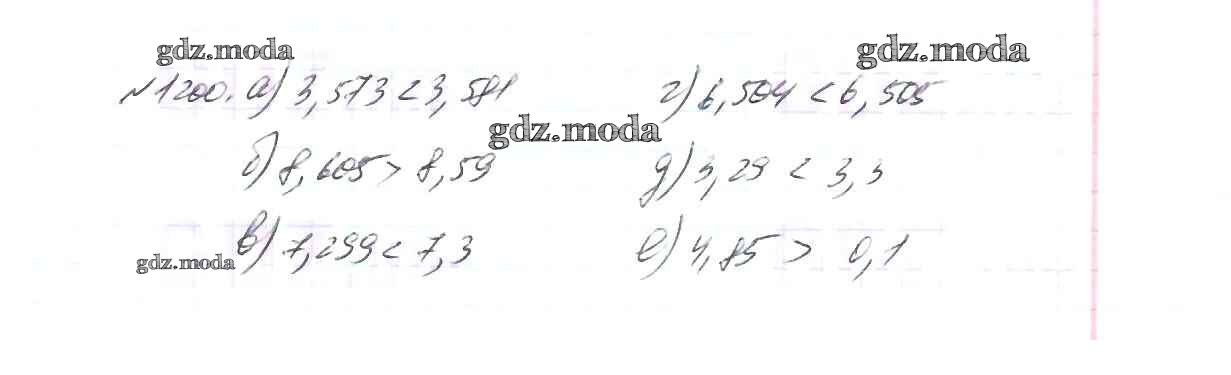 gdz.moda
gdz.moda
№1200. а) 3,573 < 3,581
г) 6,504 < 6,505
gdz.moda
б) 8,605 > 8,59
д) 3,29 < 3,3
в) 7,299 < 7,3
е) 4,85 > 0,1
gdz.moda